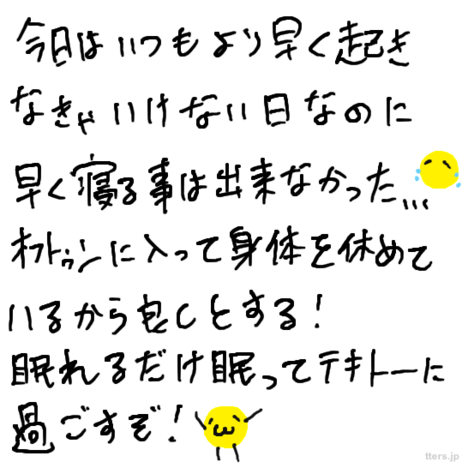 今日はいつもより早く起き
なきゃいけない日なのに
早く寝る事は出来なかった...
オフトゥンに入って身体を休めて
いるから良しとする!
眠れるだけ眠ってテキトーに
過ごすぞ!
tters.jp